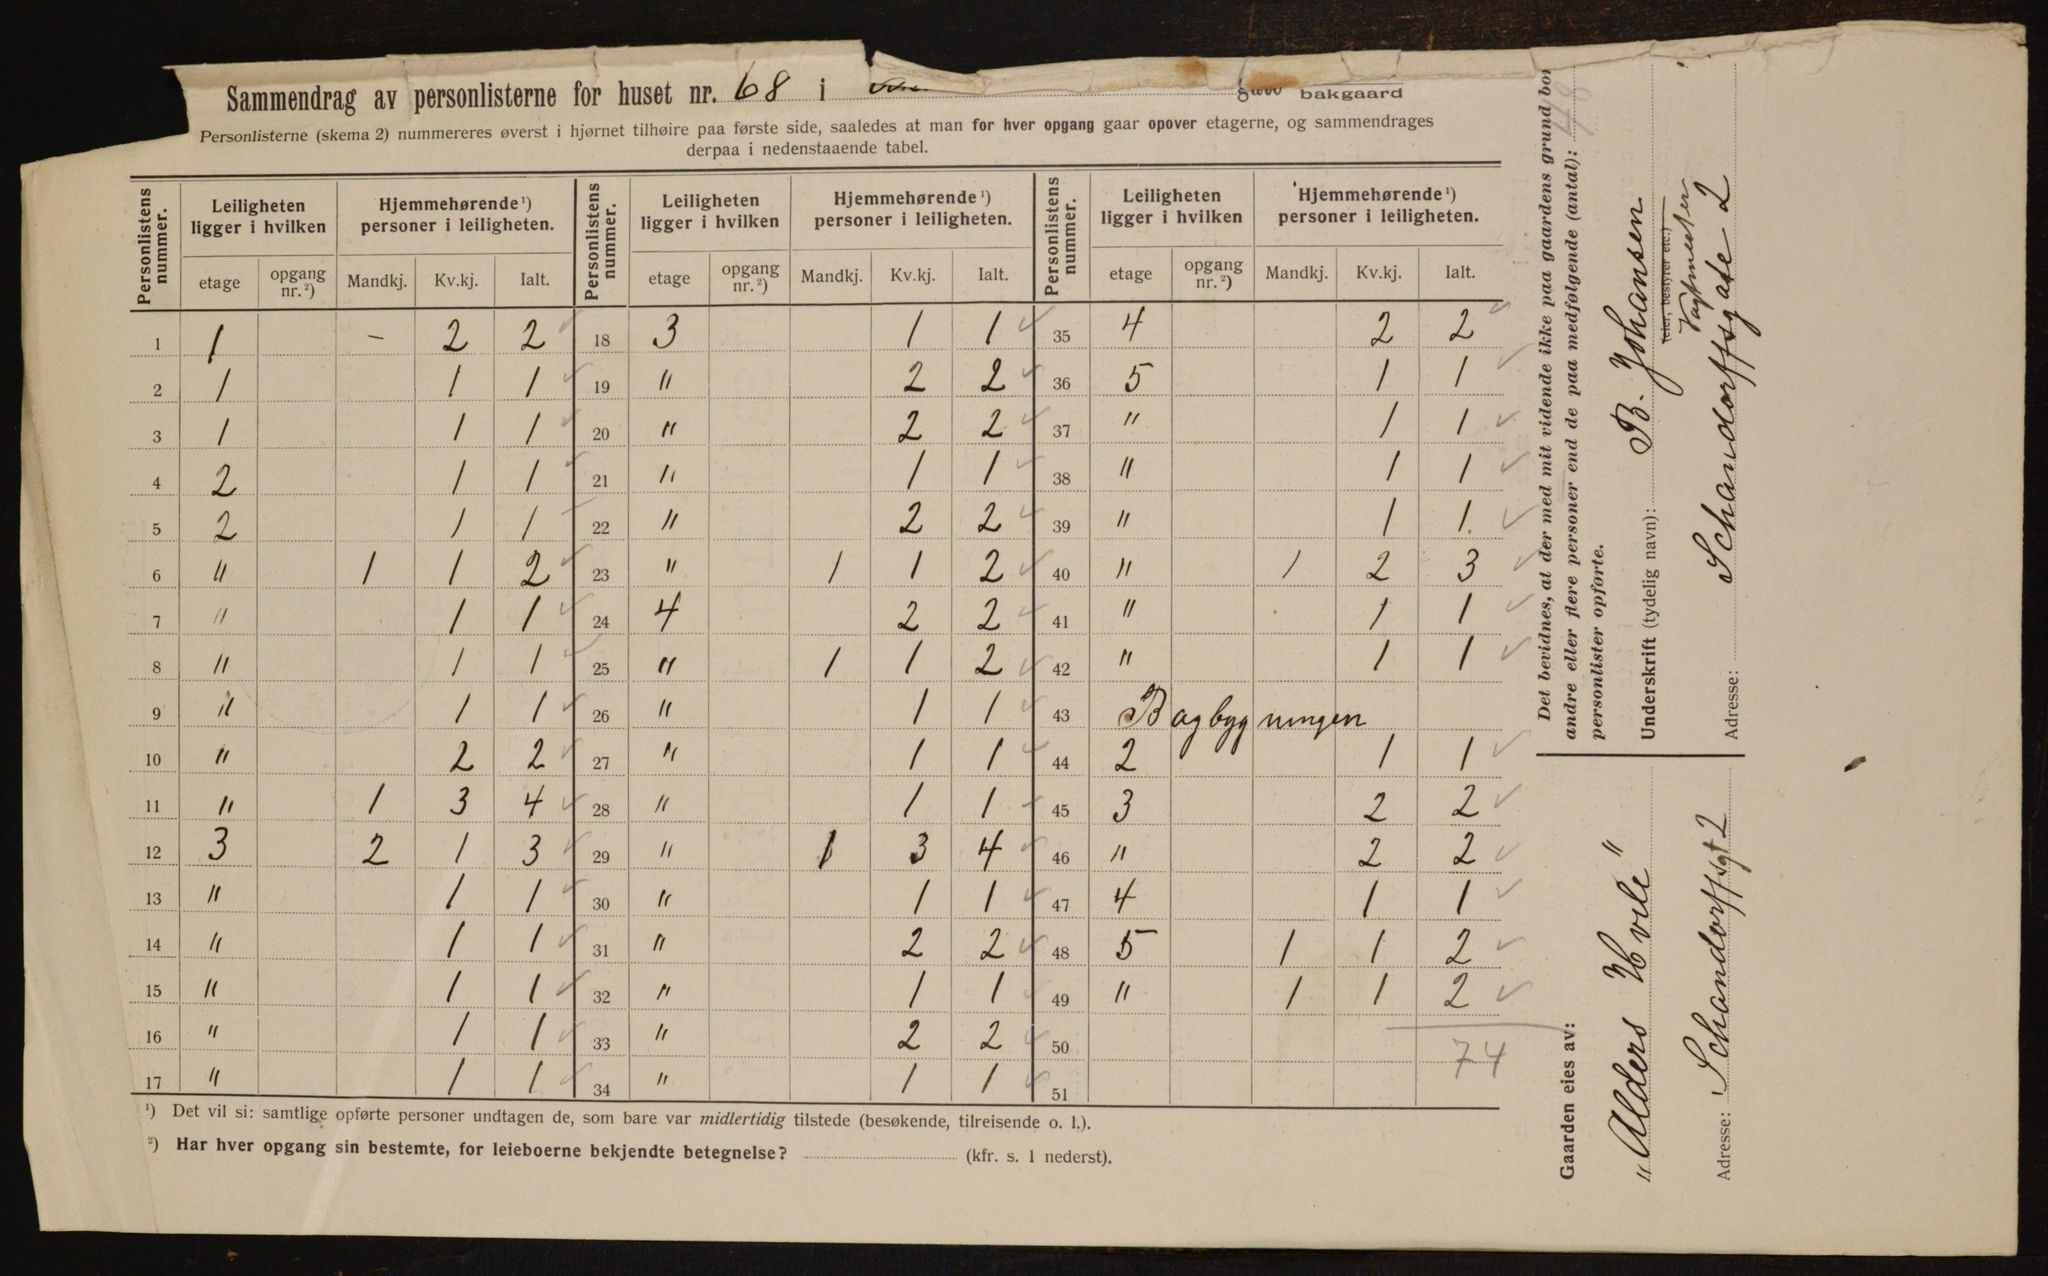 Sammendrag av personlisterne for huset nr. 68 i
bakgaard
Personlisterne (skema 2) nummereres øverst i hjørnet tilhøire paa første side, saaledes at man for hver opgang gaar opover etagerne, og sammendrages
derpaa i nedenstaaende tabel.
Personlistens nummer. Leiligheten ligger i hvilken Hjemmehørende ¹) personer i leiligheten. Personlistens nummer. Leiligheten ligger i hvilken Hjemmehørende ¹) personer i leiligheten. Personlistens nummer. Leiligheten ligger i hvilken Hjemmehørende ¹) personer i leiligheten.
etage opgang nr. ²) Mandkj. Kv.kj. Ialt. etage opgang nr. ²) Mandkj. Kv.kj. Ialt. etage opgang nr. ²) Mandkj. Kv.kj. Ialt.
1 1 – 2 2 18 3 1 1 35 4 2 2
2 1 1 1 19 " 2 2 36 5 1 1
3 1 1 1 20 " 2 2 37 " 1 1
4 2 1 1 21 " 1 1 38 " 1 1
5 2 1 1 22 " 2 2 39 " 1 1
6 " 1 1 2 23 " 1 1 2 40 " 1 2 3
7 " 1 1 24 4 2 2 41 " 1 1
8 " 1 1 25 " 1 1 2 42 " 1 1
9 " 1 1 26 " 1 1 43 Bagbygningen
10 " 2 2 27 " 1 1 44 2 1 1
11 " 1 3 4 28 " 1 1 45 3 2 2
12 3 2 1 3 29 " 1 3 4 46 " 2 2
13 " 1 1 30 " 1 1 47 4 1 1
14 " 1 1 31 " 2 2 48 5 1 1 2
15 " 1 1 32 " 1 1 49 " 1 1 2
16 " 1 1 33 " 2 2 50
17 " 1 1 34 " 1 1 51
74
¹) Det vil si: samtlige opførte personer undtagen de, som bare var midlertidig tilstede (besøkende, tilreisende o. l.).
²) Har hver opgang sin bestemte, for leieboerne bekjendte betegnelse? (kfr. s. 1 nederst).
Det bevidnes, at der med mit vidende ikke paa gaardens grund bor
andre eller flere personer end de paa medfølgende (antal): 48
personlister opførte.
Underskrift (tydelig navn): B. Johansen
(eier, bestyrer etc.)
Vagtmester
Adresse: Schandorffsgate 2
Gaarden eies av:
"Alders Hvile"
Adresse: Schandorffsgt 2